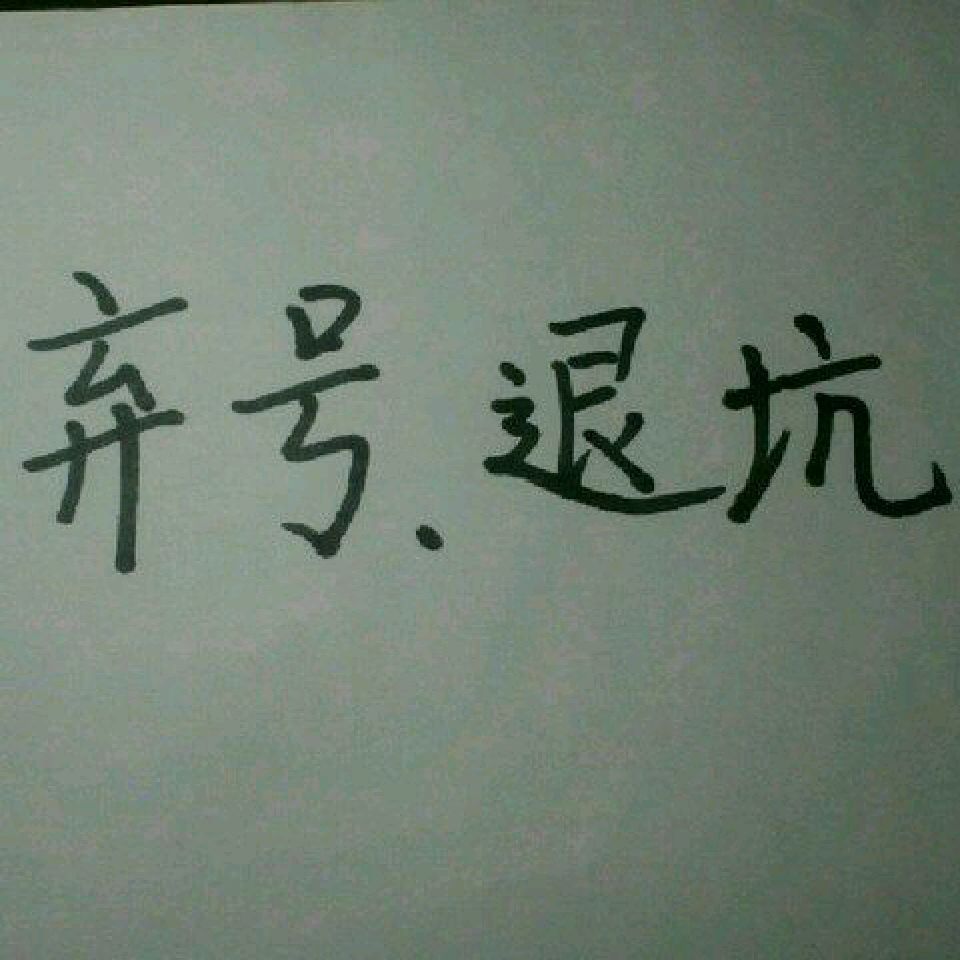 弃号.退坑